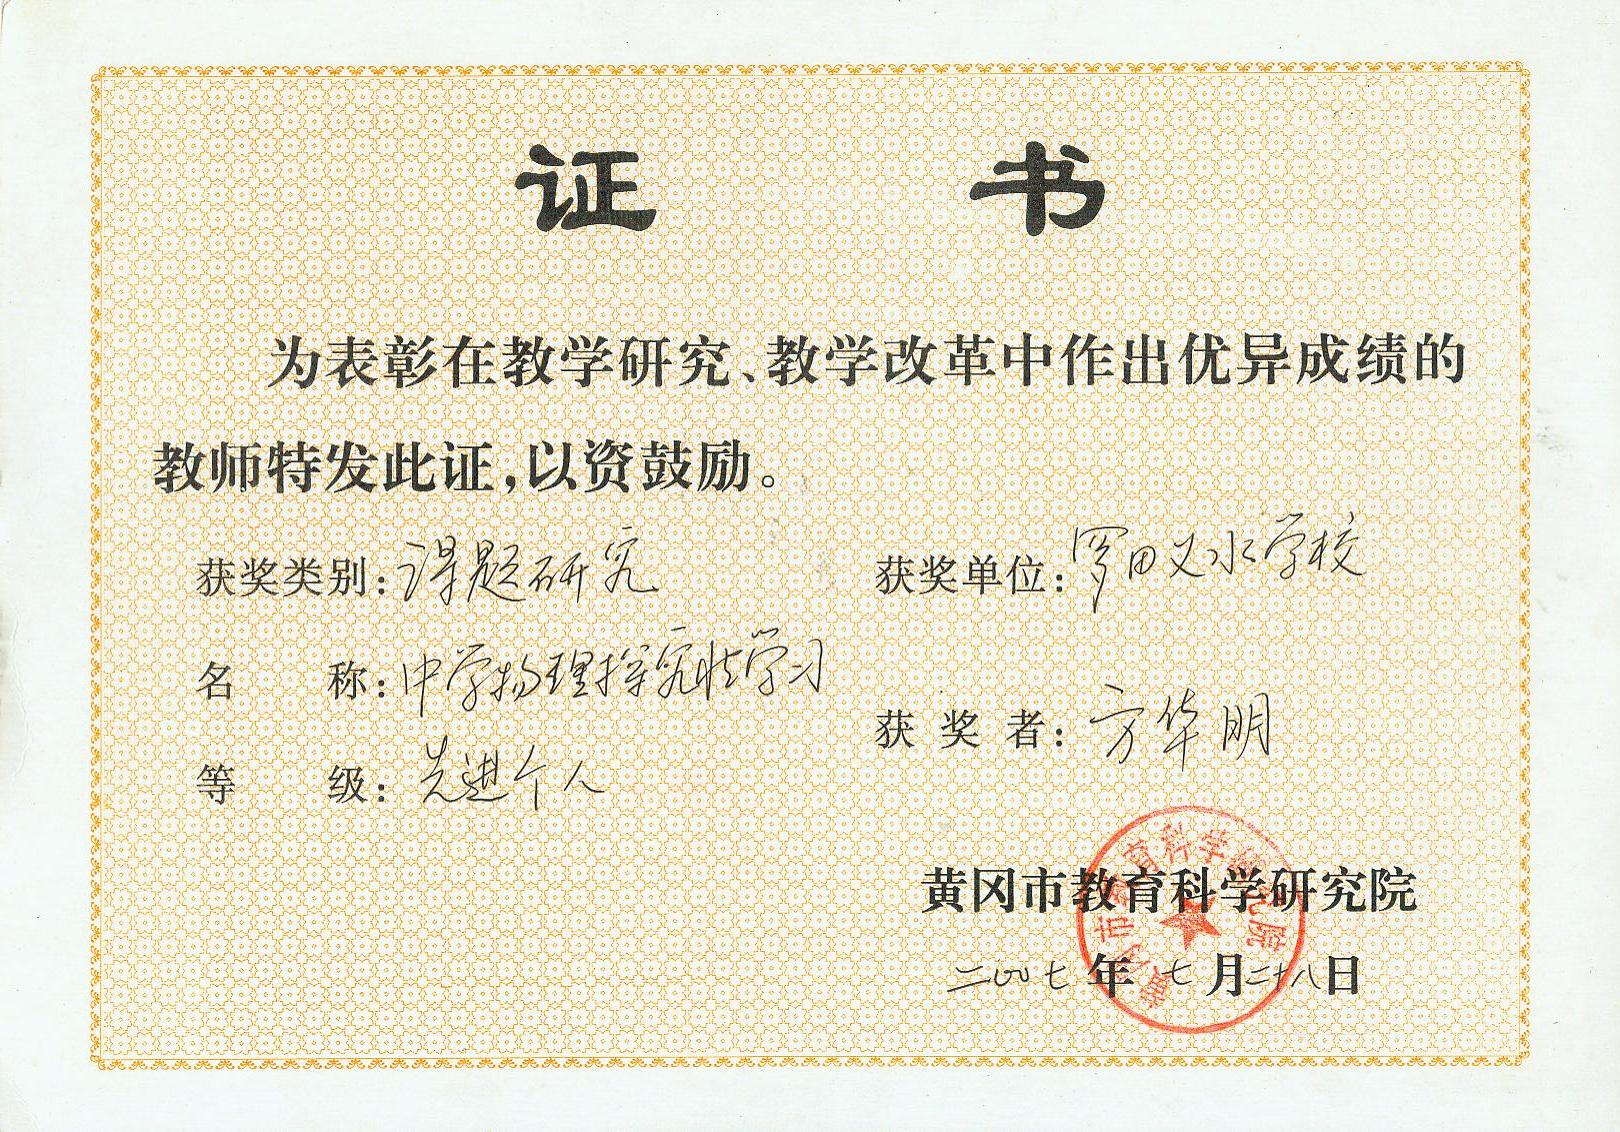 证书
为表彰在教学研究、教学改革中作出优异成绩的
教师特发此证,以资鼓励。
获奖类别:课题研究
名称:中学物理探究性学习
等级:先进个人
获奖单位:罗田义水学校
获奖者:方华明
黄冈市教育科学研究院
二〇〇七年七月二十八日
黄冈市教育科学研究院